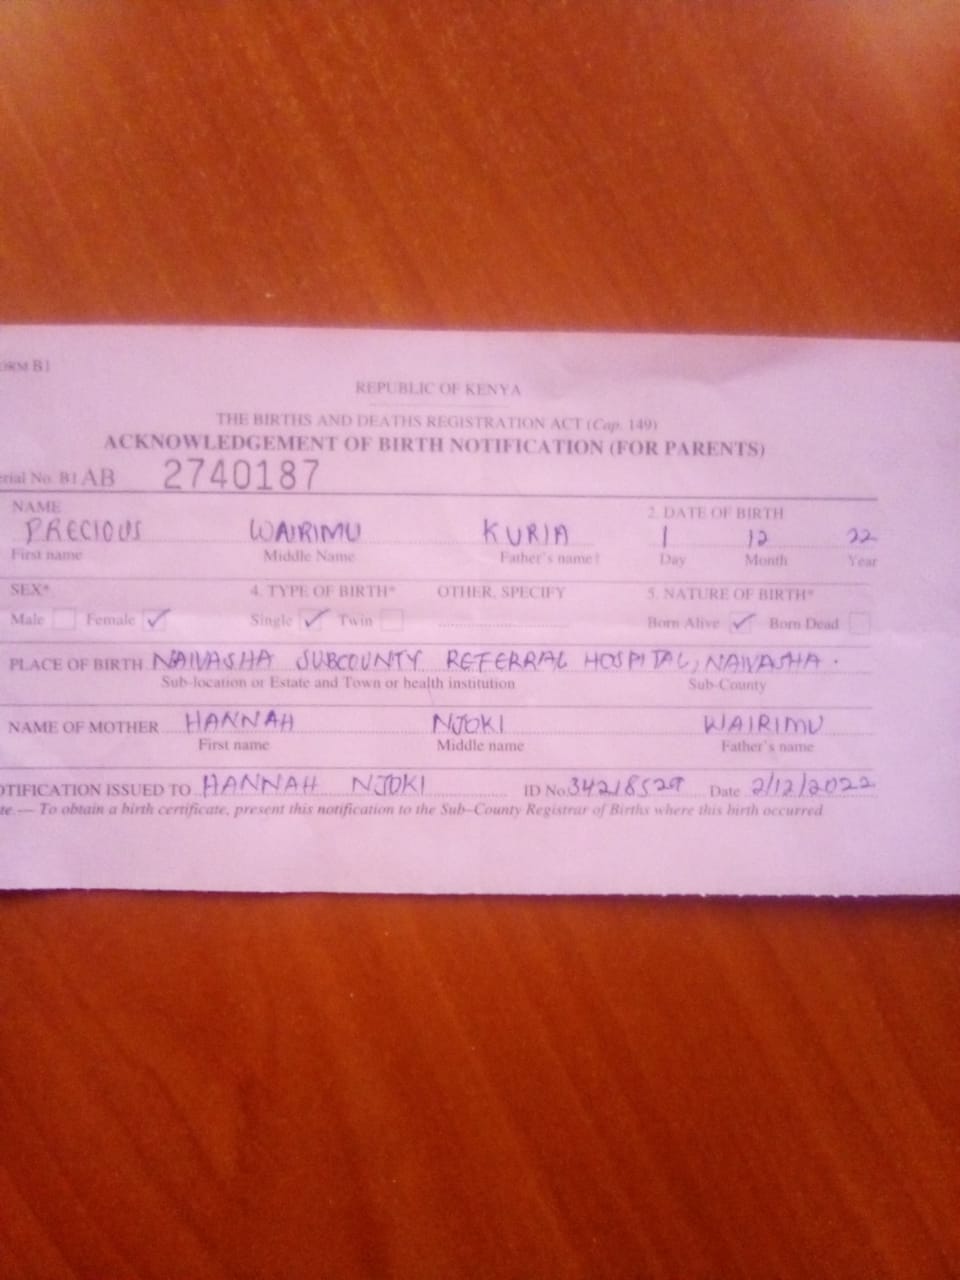 ORM B1
REPUBLIC OF KENYA
THE BIRTHS AND DEATHS REGISTRATION ACT (Cap. 149)
ACKNOWLEDGEMENT OF BIRTH NOTIFICATION (FOR PARENTS)
erial No. B1 AB 2740187
NAME 2. DATE OF BIRTH
PRECIOUS WAIRIMU KURIA 1 12 22
First name Middle Name Father's name† Day Month Year
SEX* 4. TYPE OF BIRTH* OTHER, SPECIFY 5. NATURE OF BIRTH*
Male Female ✓ Single ✓ Twin Born Alive ✓ Born Dead
PLACE OF BIRTH NAIVASHA SUBCOUNTY REFERRAL HOSPITAL, NAIVASHA.
Sub-location or Estate and Town or health institution Sub-County
NAME OF MOTHER HANNAH NJOKI WAIRIMU
First name Middle name Father's name
OTIFICATION ISSUED TO HANNAH NJOKI ID No. 34218529 Date 2/12/2022
te.— To obtain a birth certificate, present this notification to the Sub-County Registrar of Births where this birth occurred